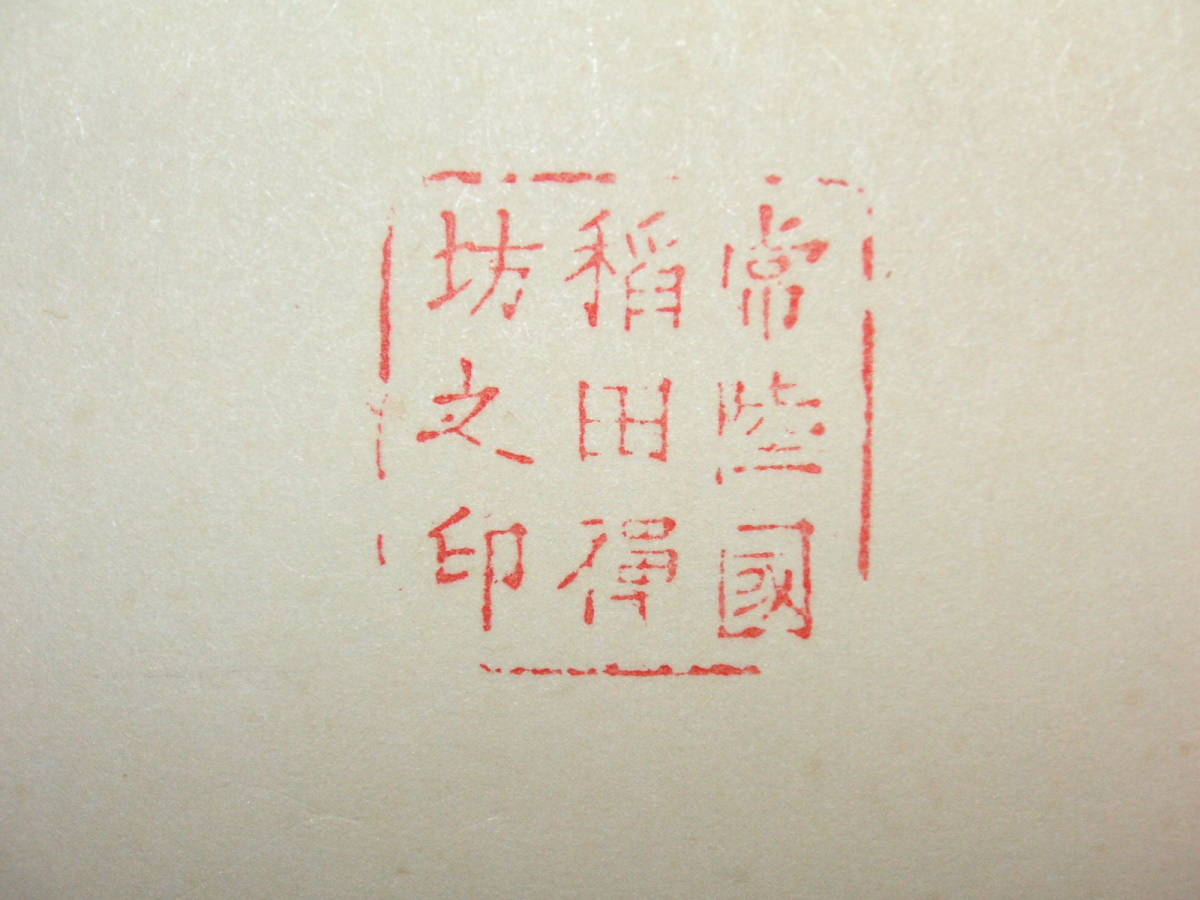 常陸國
稲田禪
坊之印